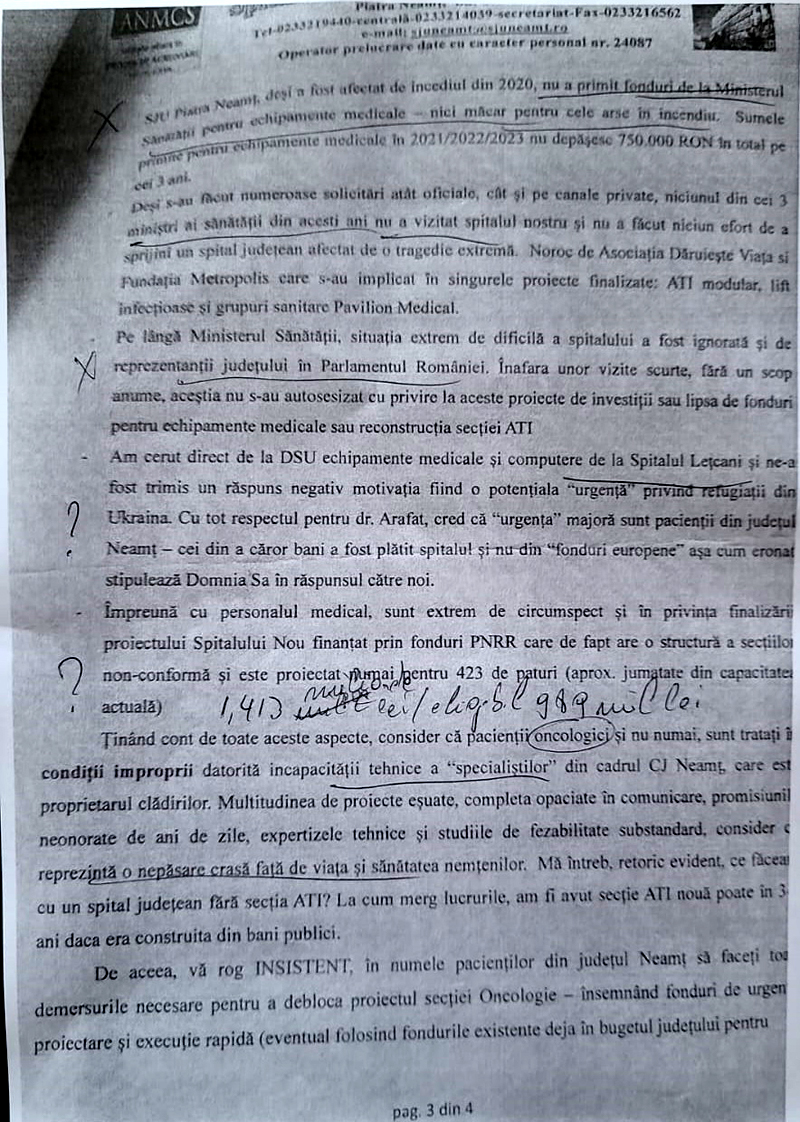 ANMCS
Piatra Neamț
Tel-0233219440-centrală-0233214039-secretariat-Fax-0233216562
e-mail: sjuneamt@sjuneamt.ro
Operator prelucrare date cu caracter personal nr. 24087
X SJU Piatra Neamț, deși a fost afectat de incediul din 2020, nu a primit fonduri de la Ministerul
Sănătății pentru echipamente medicale – nici măcar pentru cele arse în incendiu. Sumele
primite pentru echipamente medicale în 2021/2022/2023 nu depășesc 750.000 RON în total pe
cei 3 ani.
Deși s-au făcut numeroase solicitări atât oficiale, cât și pe canale private, niciunul din cei 3
miniștri ai sănătății din acesti ani nu a vizitat spitalul nostru și nu a făcut niciun efort de a
sprijini un spital județean afectat de o tragedie extremă. Noroc de Asociația Dăruiește Viața si
Fundația Metropolis care s-au implicat în singurele proiecte finalizate: ATI modular, lift
infecțioase și grupuri sanitare Pavilion Medical.
- Pe lângă Ministerul Sănătății, situația extrem de dificilă a spitalului a fost ignorată și de
X reprezentanții județului în Parlamentul României. Înafara unor vizite scurte, fără un scop
anume, aceștia nu s-au autosesizat cu privire la aceste proiecte de investiții sau lipsa de fonduri
pentru echipamente medicale sau reconstrucția secției ATI
- Am cerut direct de la DSU echipamente medicale și computere de la Spitalul Lețcani și ne-a
fost trimis un răspuns negativ motivația fiind o potențiala “urgență” privind refugiații din
? Ukraina. Cu tot respectul pentru dr. Arafat, cred că “urgența” majoră sunt pacienții din județul
Neamț – cei din a căror bani a fost plătit spitalul și nu din “fonduri europene” așa cum eronat
stipulează Domnia Sa în răspunsul către noi.
- Împreună cu personalul medical, sunt extrem de circumspect și în privința finalizării
proiectului Spitalului Nou finanțat prin fonduri PNRR care de fapt are o structură a secțiilor
? non-conformă și este proiectat numai pentru 423 de paturi (aprox. jumatate din capacitatea
actuală) 1,413 lei/eligibil 989 mil lei
Ținând cont de toate aceste aspecte, consider că pacienții oncologici și nu numai, sunt tratați î
condiții improprii datorită incapacității tehnice a “specialiștilor” din cadrul CJ Neamț, care est
proprietarul clădirilor. Multitudinea de proiecte eșuate, completa opaciate în comunicare, promisiunil
neonorate de ani de zile, expertizele tehnice și studiile de fezabilitate substandard, consider c
reprezintă o nepăsare crasă față de viața și sănătatea nemțenilor. Mă întreb, retoric evident, ce făcea
cu un spital județean fără secția ATI? La cum merg lucrurile, am fi avut secție ATI nouă poate în 3
ani daca era construita din bani publici.
De aceea, vă rog INSISTENT, în numele pacienților din județul Neamț să faceți toa
demersurile necesare pentru a debloca proiectul secției Oncologie – însemnând fonduri de urgen
proiectare și execuție rapidă (eventual folosind fondurile existente deja în bugetul județului pentru
pag. 3 din 4